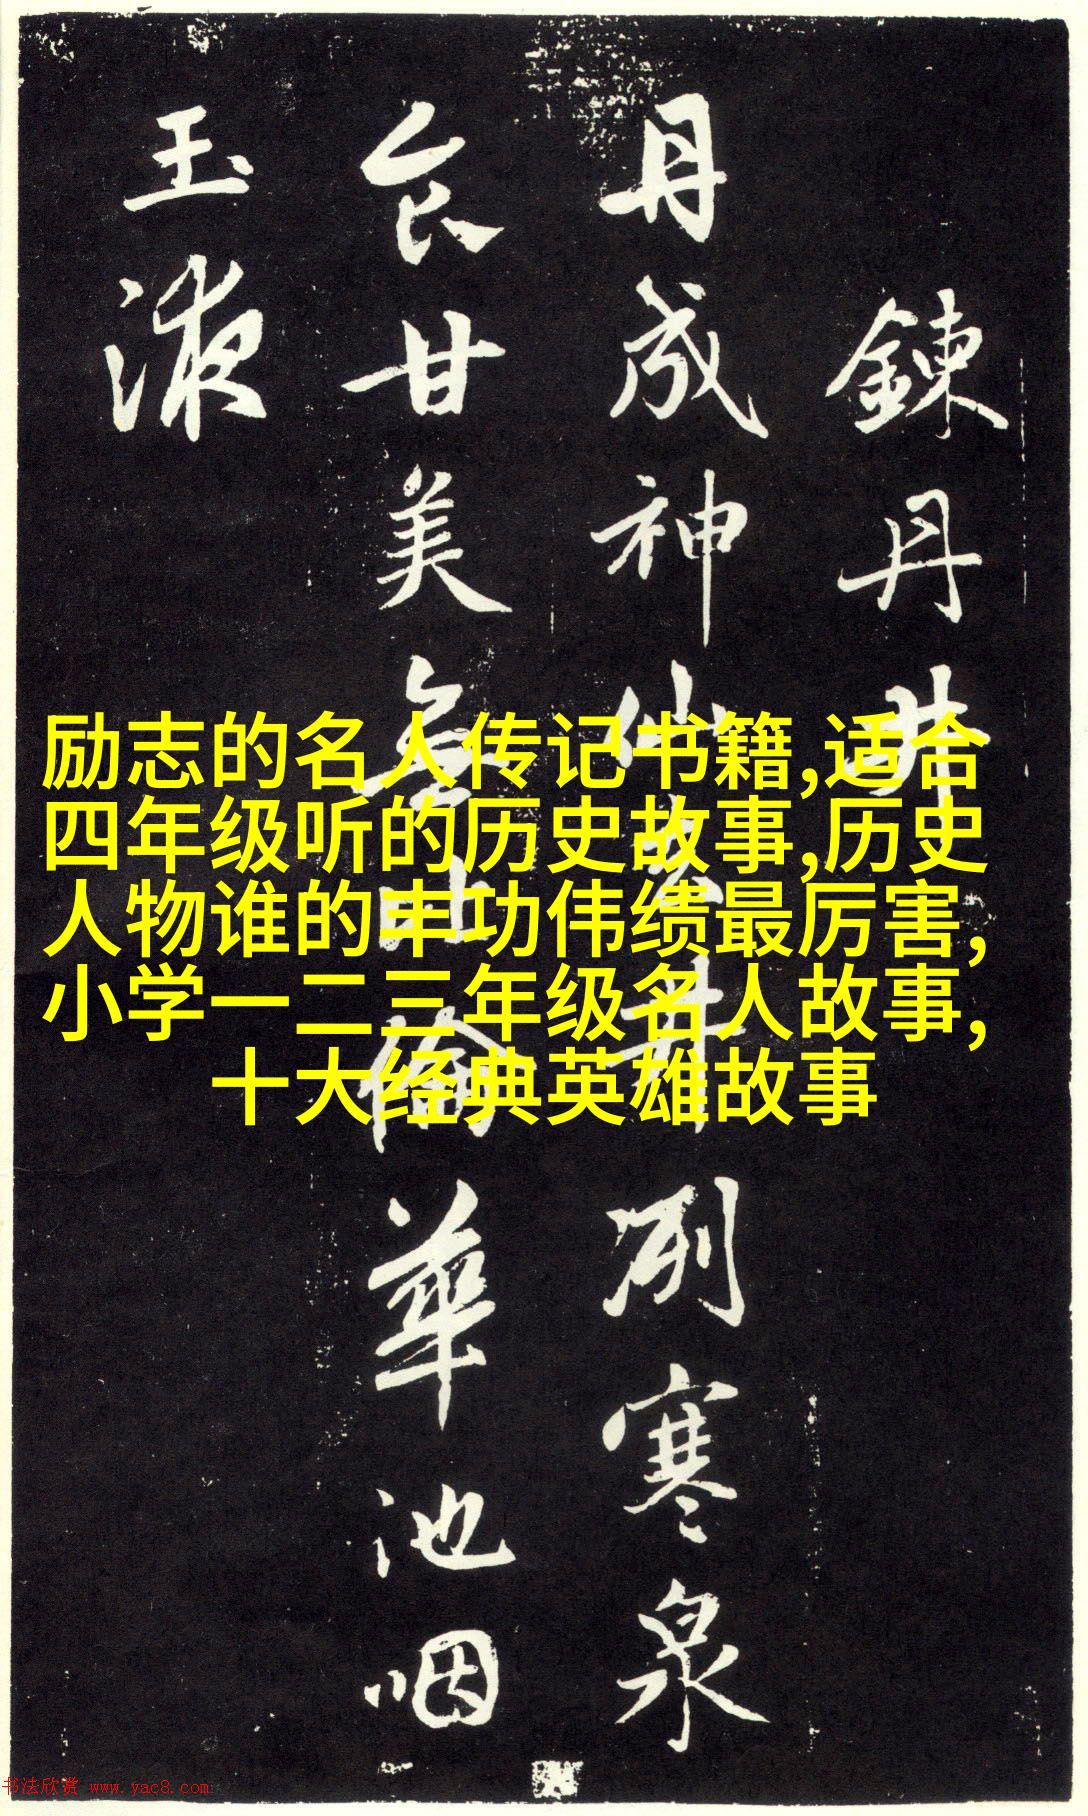 鍊丹井
丹成神仙去井冽寒泉
食甘美無比倫華池咽
玉液
励志的名人传记书籍,适合
四年级听的历史故事,历史
人物谁的丰功伟绩最厉害,
小学一二三年级名人故事,
十大经典英雄故事
书法欣赏 www.yac8.com